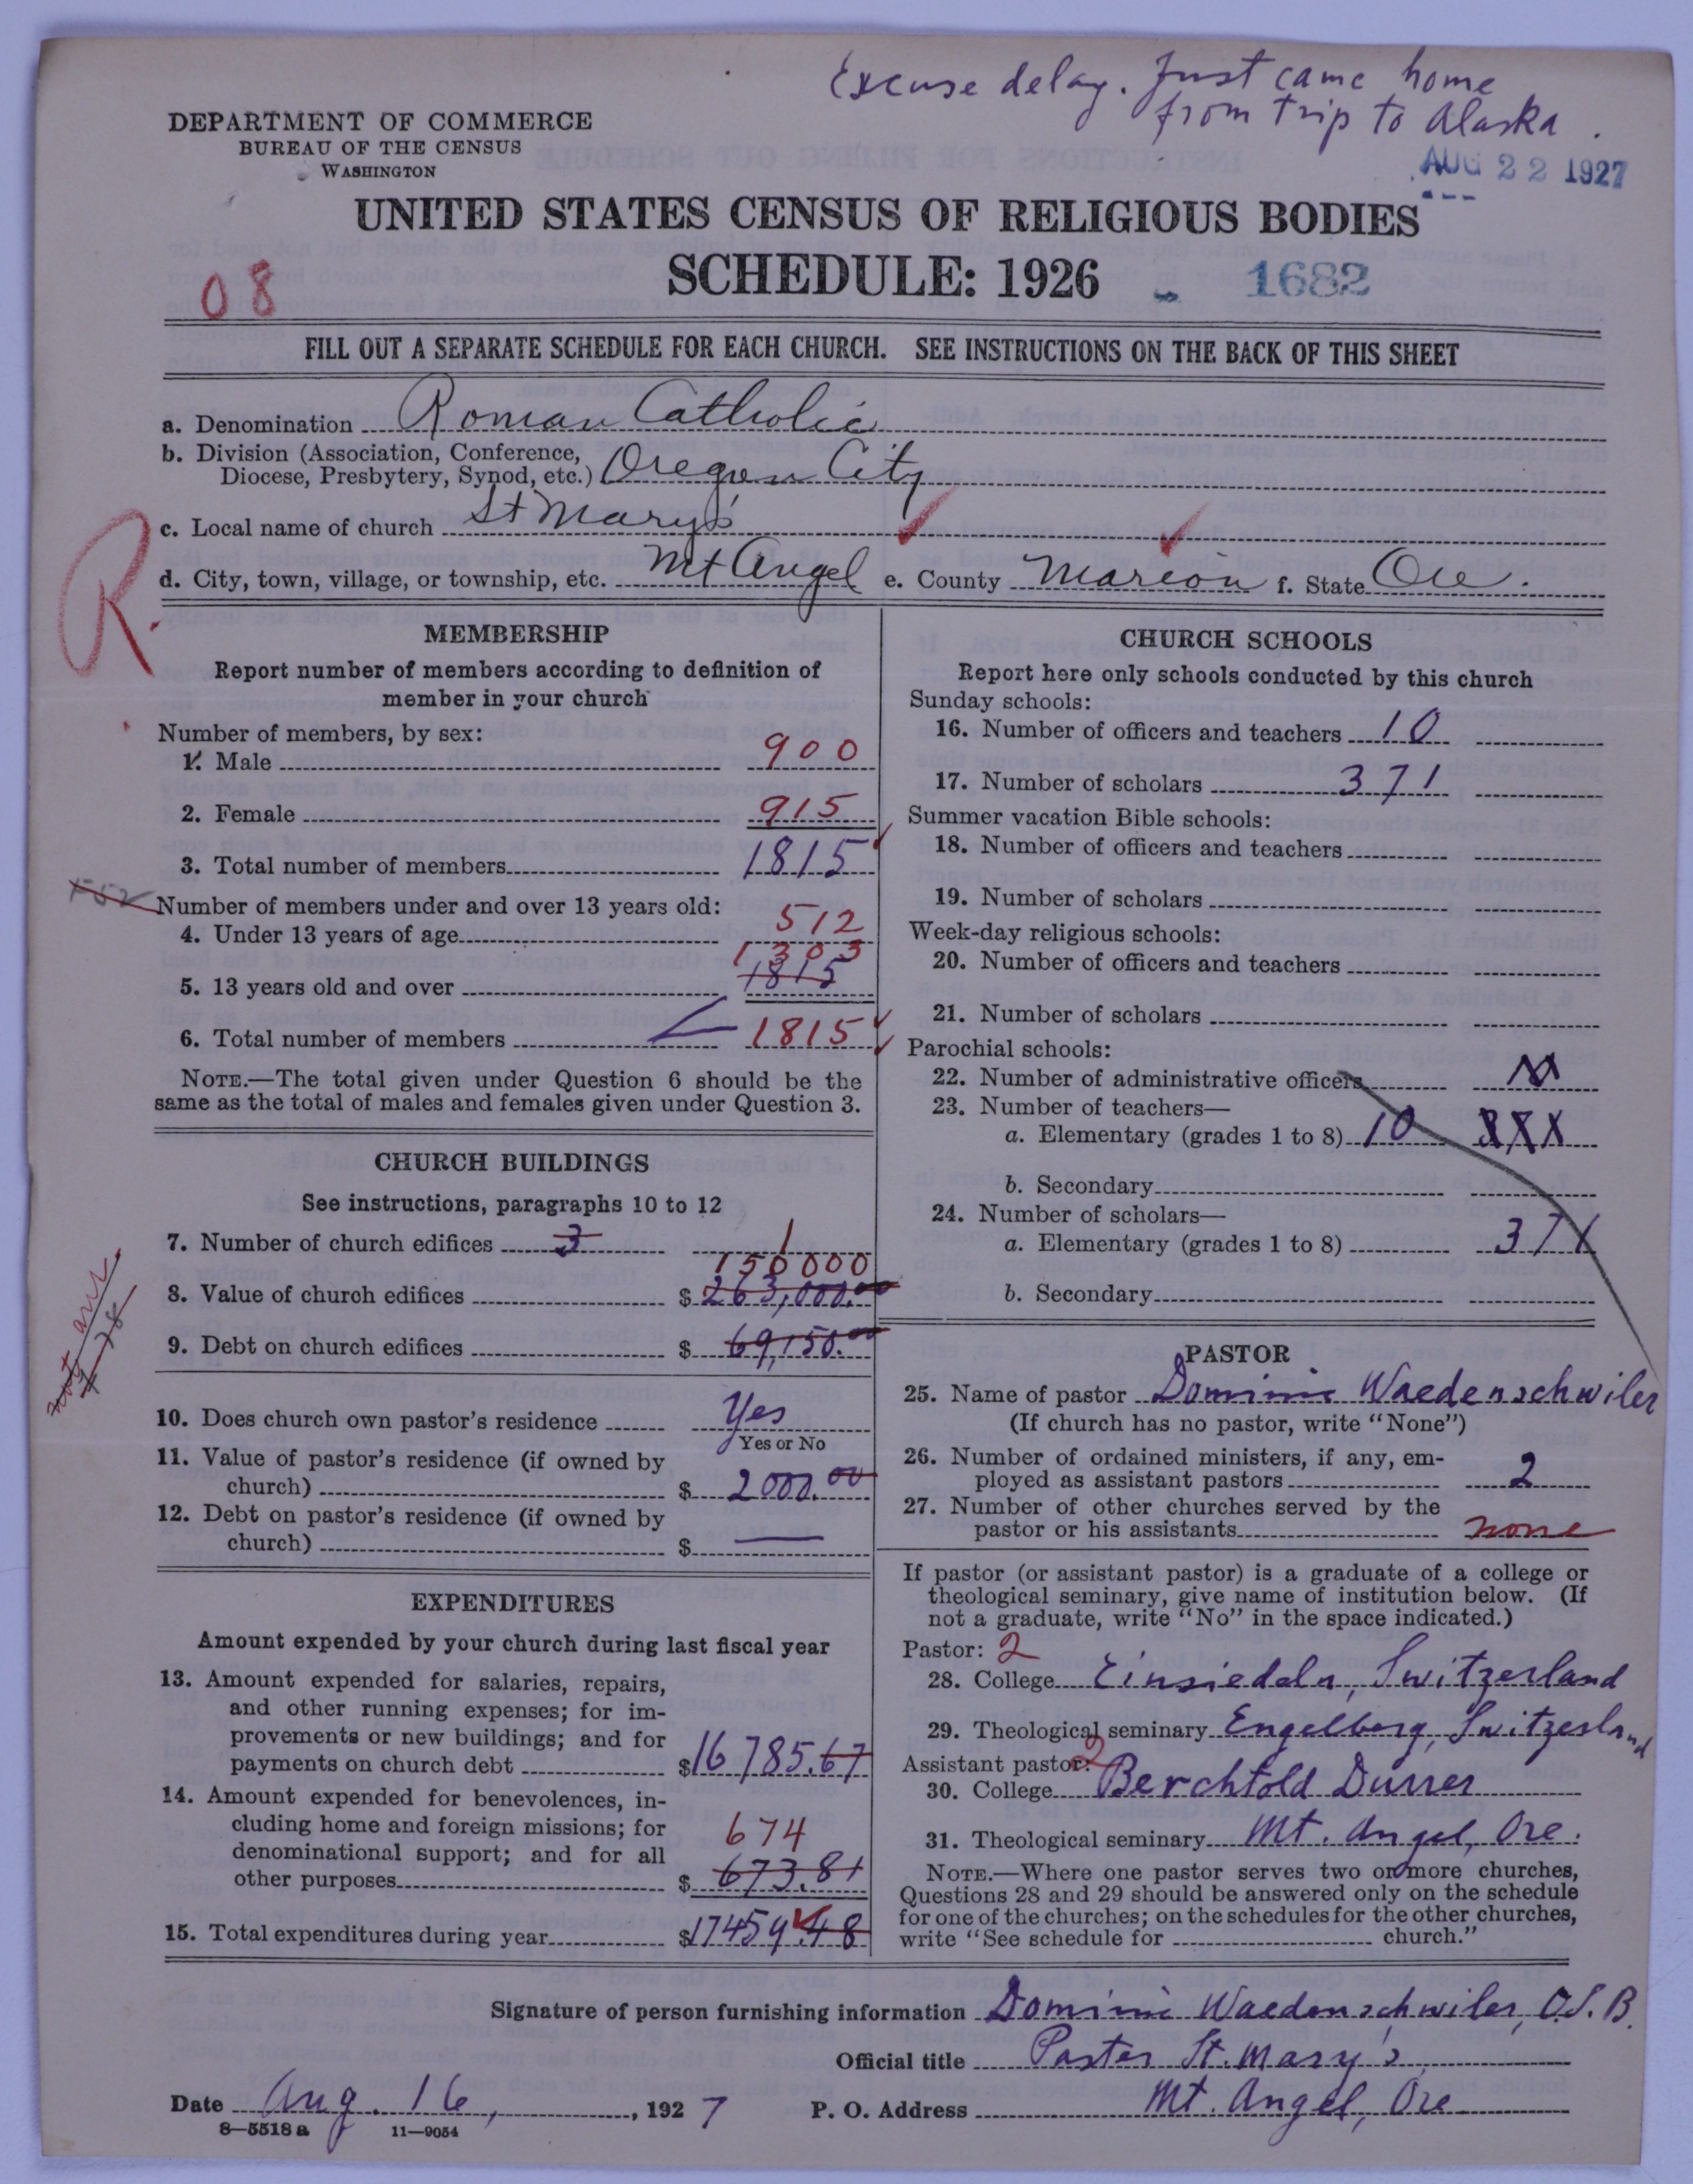 Excuse delay. Just came home
from trip to Alaska.
DEPARTMENT OF COMMERCE
BUREAU OF THE CENSUS
WASHINGTON
AUG 22 1927
UNITED STATES CENSUS OF RELIGIOUS BODIES
SCHEDULE: 1926
1682
08
FILL OUT A SEPARATE SCHEDULE FOR EACH CHURCH. SEE INSTRUCTIONS ON THE BACK OF THIS SHEET
a. Denomination Roman Catholic
b. Division (Association, Conference,
Diocese, Presbytery, Synod, etc.) Oregon City
c. Local name of church St Mary's
d. City, town, village, or township, etc. Mt Angel e. County Marion f. State Ore.
R.
MEMBERSHIP
Report number of members according to definition of
member in your church
Number of members, by sex:
1. Male 900
2. Female 915
3. Total number of members 1815
Number of members under and over 13 years old:
4. Under 13 years of age 512
1303
5. 13 years old and over 1815
6. Total number of members 1815
NOTE.—The total given under Question 6 should be the
same as the total of males and females given under Question 3.
CHURCH BUILDINGS
See instructions, paragraphs 10 to 12
7. Number of church edifices 3 1
150000
8. Value of church edifices $ 263,000.00
9. Debt on church edifices $ 69,150.00
10. Does church own pastor's residence Yes
Yes or No
11. Value of pastor's residence (if owned by
church) $ 2000.00
12. Debt on pastor's residence (if owned by
church) $ —
EXPENDITURES
Amount expended by your church during last fiscal year
13. Amount expended for salaries, repairs,
and other running expenses; for im-
provements or new buildings; and for
payments on church debt $16785.67
14. Amount expended for benevolences, in-
cluding home and foreign missions; for
denominational support; and for all
674
other purposes $ 673.81
15. Total expenditures during year $17459.48
CHURCH SCHOOLS
Report here only schools conducted by this church
Sunday schools:
16. Number of officers and teachers 10
17. Number of scholars 371
Summer vacation Bible schools:
18. Number of officers and teachers
19. Number of scholars
Week-day religious schools:
20. Number of officers and teachers
21. Number of scholars
Parochial schools:
22. Number of administrative officers
23. Number of teachers—
a. Elementary (grades 1 to 8) 10 XXX
b. Secondary
24. Number of scholars—
a. Elementary (grades 1 to 8) 371
b. Secondary
PASTOR
25. Name of pastor Dominic Waedenschwiler
(If church has no pastor, write "None")
26. Number of ordained ministers, if any, em-
ployed as assistant pastors 2
27. Number of other churches served by the
pastor or his assistants none
If pastor (or assistant pastor) is a graduate of a college or
theological seminary, give name of institution below. (If
not a graduate, write "No" in the space indicated.)
Pastor: 2
28. College Einsiedeln, Switzerland
29. Theological seminary Engelberg, Switzerland
Assistant pastor: 2
30. College Berchtold Durrer
31. Theological seminary Mt. Angel, Ore.
NOTE.—Where one pastor serves two or more churches,
Questions 28 and 29 should be answered only on the schedule
for one of the churches; on the schedules for the other churches,
write "See schedule for church."
Signature of person furnishing information Dominic Waedenschwiler, O.S.B.
Official title Pastor St. Mary's
Date Aug. 16, 1927 P. O. Address Mt. Angel, Ore
8—5518a 11—9054